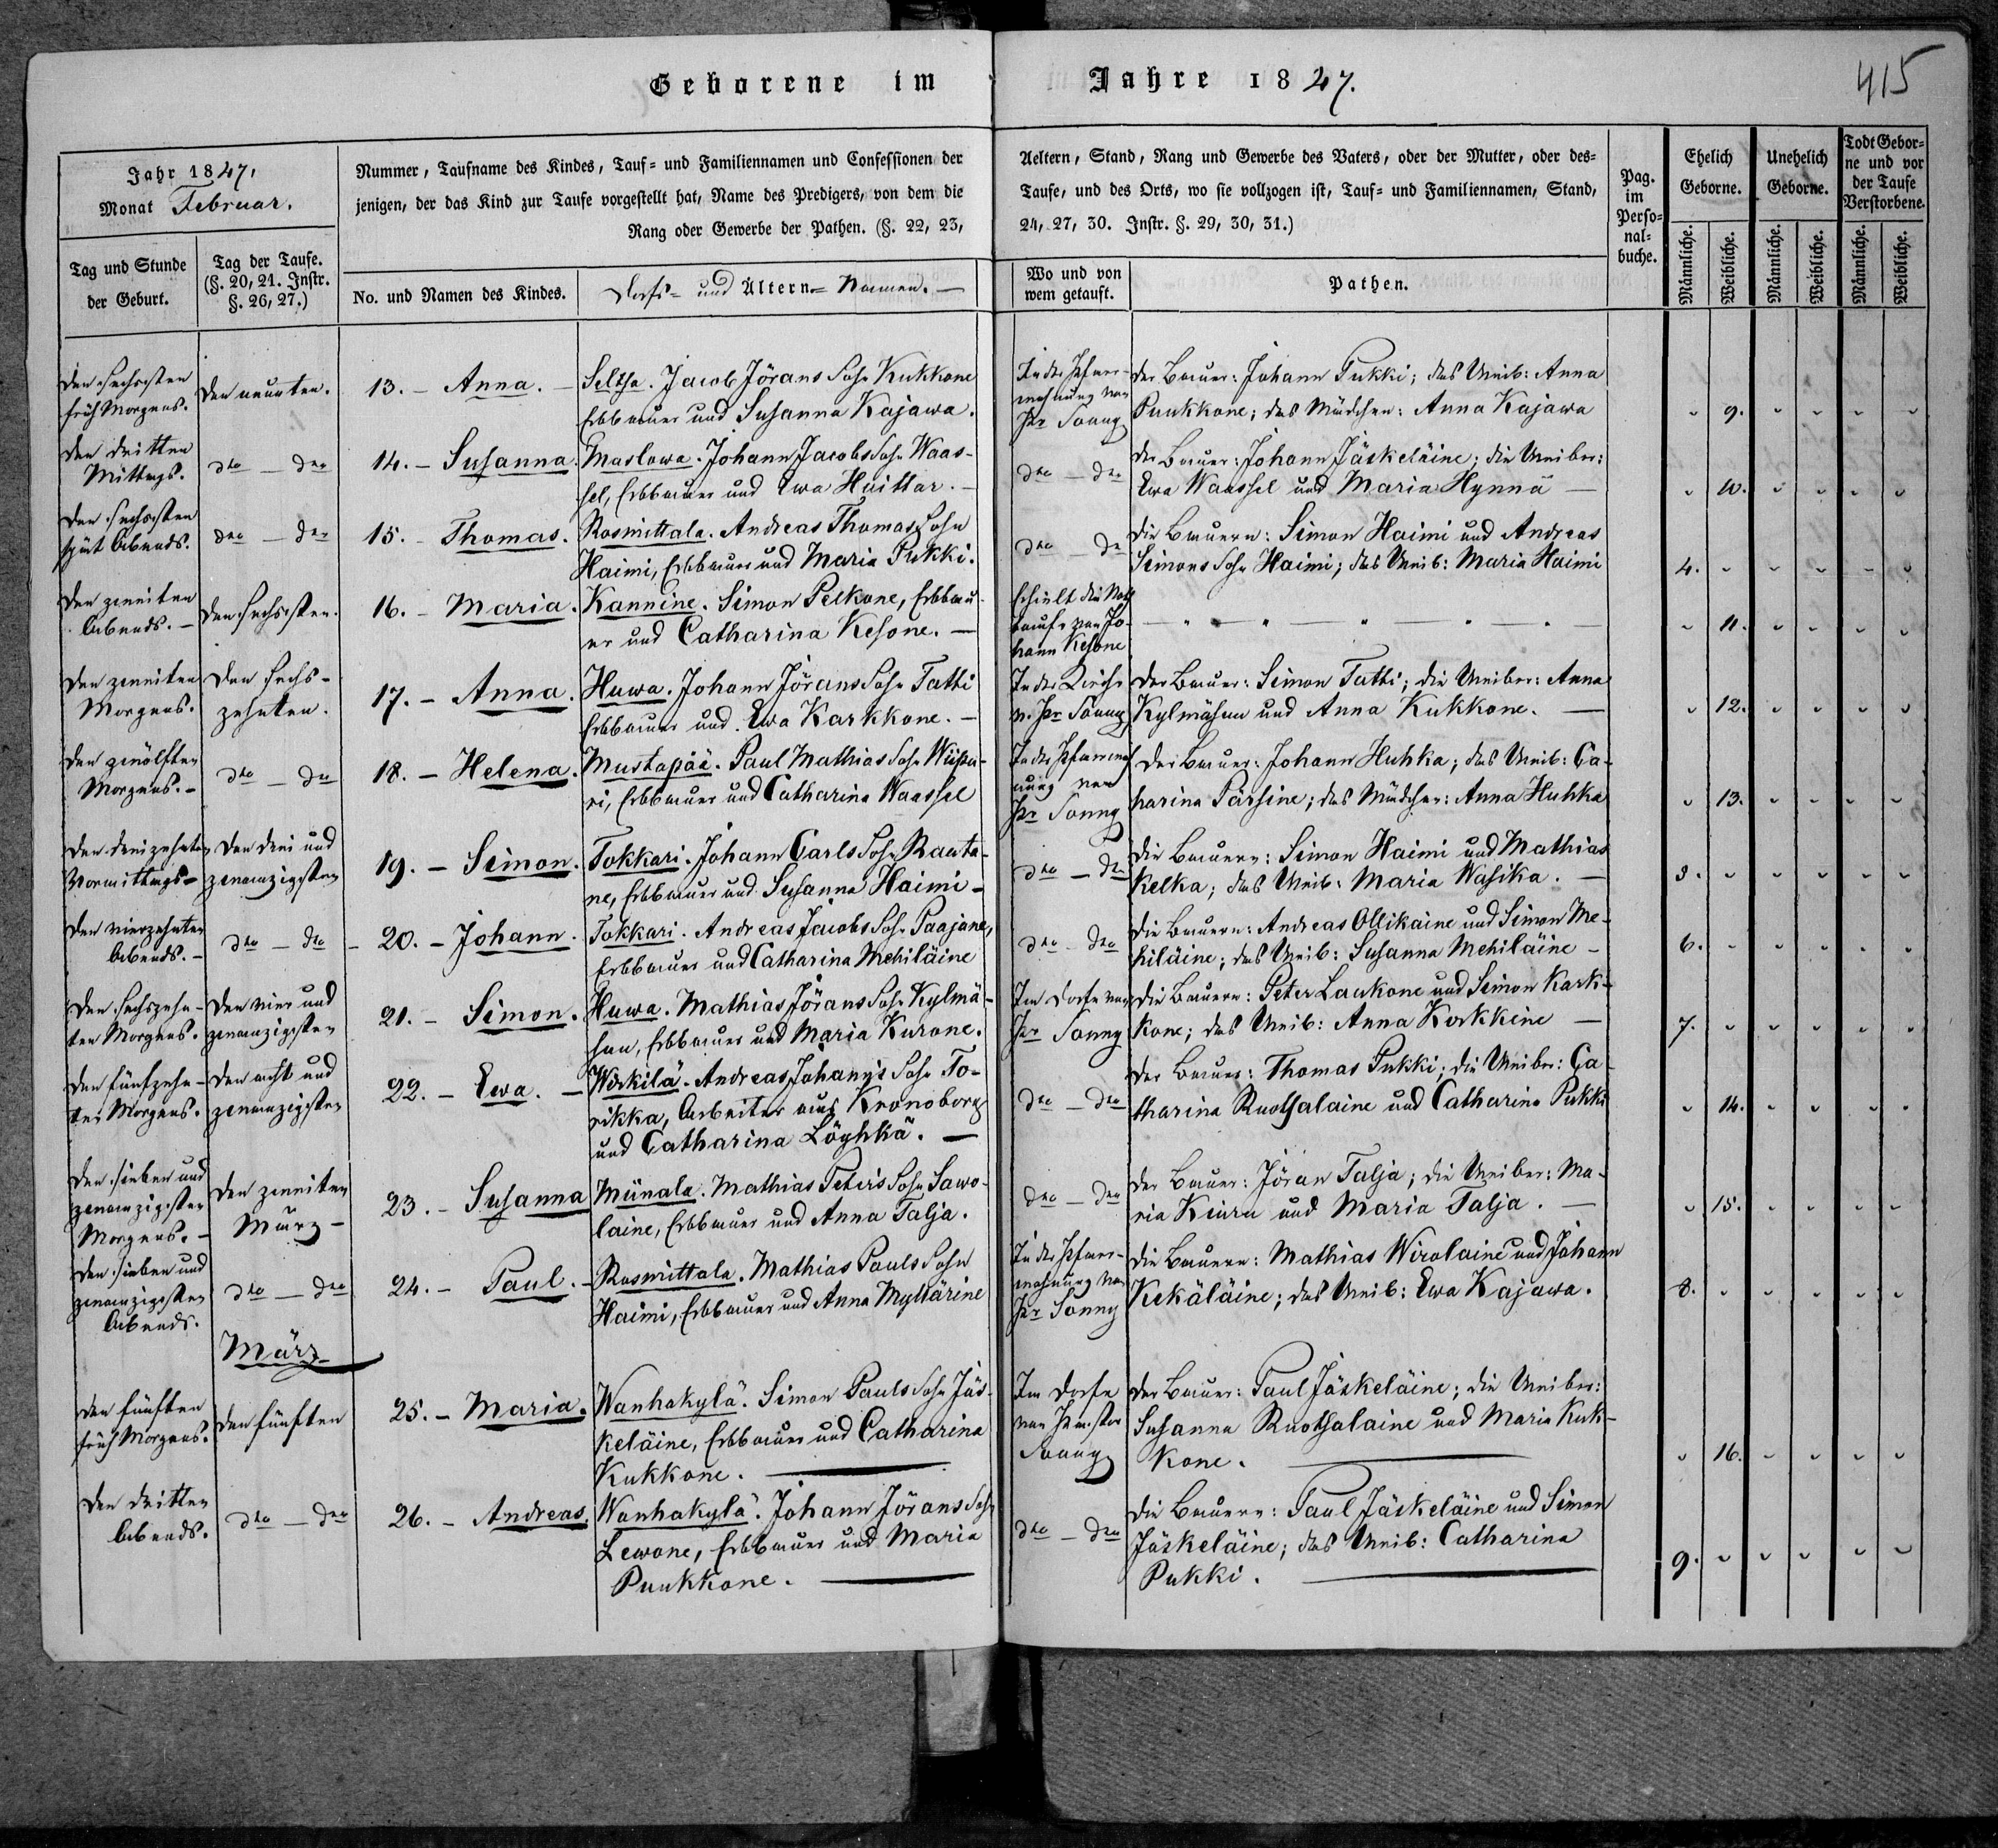 Geborene im Jahre 1847.
415
Jahr 1847,
Monat Februar.
Tag und Stunde
der Geburt.
Tag der Taufe.
(§. 20, 21. Instr.
§. 26, 27.)
Nummer, Taufname des Kindes, Tauf- und Familiennamen und Confessionen der
jenigen, der das Kind zur Taufe vorgestellt hat, Name des Predigers, von dem die
Rang oder Gewerbe der Pathen. (§. 22, 23,
No. und Namen des Kindes.
Dorfs- und Altern- Namen.
Aeltern, Stand, Rang und Gewerbe des Vaters, oder der Mutter, oder des-
Taufe, und des Orts, wo sie vollzogen ist, Tauf- und Familiennamen, Stand,
24, 27, 30. Instr. §. 29, 30, 31.)
Wo und von
wem getauft.
Pathen.
Pag.
im
Perso-
nal-
buche.
Ehelich
Geborne.
Unehelich
Geborne.
Todt Gebor-
ne und vor
der Taufe
Verstorbene.
Männliche.
Weibliche.
Männliche.
Weibliche.
Männliche.
Weibliche.
den sechsten
früh Morgens.
den neunten.
13. - Anna. -
Seltsa. Jacob Jörans Sohn Kukkone
Erbbauer und Susanna Kajawa.
In der Pfarr-
wohnung von
Pr Sonny
der Bauer: Johann Pukki; das Weib: Anna
Puukkone; das Mädchen: Anna Kajawa
9.
den dritten
Mittags.
dto - dto
14. - Susanna.
Maslowa. Johann Jacobs Sohn Waas-
sel, Erbbauer und Ewa Huittar. -
dto - dto
der Bauer: Johann Jäskeläine; die Weiber:
Ewa Waassel und Maria Hynnä -
10.
den sechsten
spät Abends.
dto - dto
15. - Thomas.
Rosmittala. Andreas Thomas Sohn
Haimi, Erbbauer und Maria Pukki.
dto - dto
die Bauern: Simon Haimi und Andreas
Simons Sohn Haimi; das Weib: Maria Haimi
4.
den zweiten
Abends. -
den sechsten.
16. - Maria.
Kannine. Simon Pelkone, Erbbau-
er und Catharina Kesone. -
Erhielt die Noth
taufe von Jo-
hann Kesone
11.
den zweiten
Morgens.
den sechs-
zehnten.
17. - Anna.
Huwa. Johann Jörans Sohn Tatti
Erbbauer und Ewa Karkkone. -
In der Kirche
v. Pr Sonny
der Bauer: Simon Tatti; die Weiber: Anna
Kylmäsuu und Anna Kukkone. -
12.
den zwölften
Morgens. -
dto - dto
18. - Helena.
Mustapää. Paul Mathias Sohn Wiipu-
ri, Erbbauer und Catharina Waassel
In der Pfarrwoh
nung von
Pr Sonny
der Bauer: Johann Huhka; das Weib: Ca-
harina Pärsine; das Mädchen: Anna Huhka
13.
den dreizehnten
Vormittags -
den drei und
zwanzigsten
19. - Simon.
Tokkari. Johann Carls Sohn Rauta-
ne, Erbbauer und Susanna Haimi -
dto - dto
die Bauern: Simon Haimi und Mathias
Kelka; das Weib: Maria Wasika. -
5.
den vierzehnten
Abends. -
dto - dto
- 20. - Johann.
Tokkari. Andreas Jacobs Sohn Paajane,
Erbbauer und Catharina Mehiläine
dto - dto
die Bauern: Andreas Ollikaine und Simon Me-
hiläine; das Weib: Susanna Mehiläine -
6.
den sechszehn-
ten Morgens.
den vier und
zwanzigsten
21. - Simon.
Huwa. Mathias Jörans Sohn Kylmä-
suu, Erbbauer und Maria Kurone.
Im Dorfe von
Pr Sonny
die Bauern: Peter Laukone und Simon Kark-
kone; das Weib: Anna Korkkine -
7.
den fünfzehn-
ten Morgens.
den acht und
zwanzigsten
22. - Ewa. -
Workilä. Andreas Johann's Sohn To-
rikka, Arbeiter aus Kronoborg
und Catharina Löyhkä. -
dto - dto
der Bauer: Thomas Pukki; die Weiber: Ca-
tharina Ruotsalaine und Catharina Pukki
14.
den sieben und
zwanzigsten
Morgens. -
den zweiten
März -
23. - Susanna
Münala. Mathias Peters Sohn Sawo-
laine, Erbbauer und Anna Talja.
dto - dto
der Bauer: Jöran Talja; die Weiber: Ma-
ria Kiuru und Maria Talja. -
15.
den sieben und
zwanzigsten
Abends.
dto - dto
24. - Paul. -
Rosmittala. Mathias Pauls Sohn
Haimi, Erbbauer und Anna Myllärine
In der Pfarr-
wohnung von
Pr Sonny
die Bauern: Mathias Wirolaine und Johann
Kekäläine; das Weib: Ewa Kajawa.
8.
März
den fünften
früh Morgens.
den fünften
25. - Maria.
Wanhakylä. Simon Pauls Sohn Jäs-
keläine, Erbbauer und Catharina
Kukkone. -
Im Dorfe
von Pastor
Sonny
der Bauer: Paul Jäskeläine; die Weiber:
Susanna Ruotsalaine und Maria Kuk-
kone. -
16.
den dritten
Abends.
dto - dto
26. - Andreas.
Wanhakylä. Johann Jörans Sohn
Lewone, Erbbauer und Maria
Puukkone. -
dto - dto
die Bauern: Paul Jäskeläine und Simon
Jäskeläine; das Weib: Catharina
Pukki. -
9.